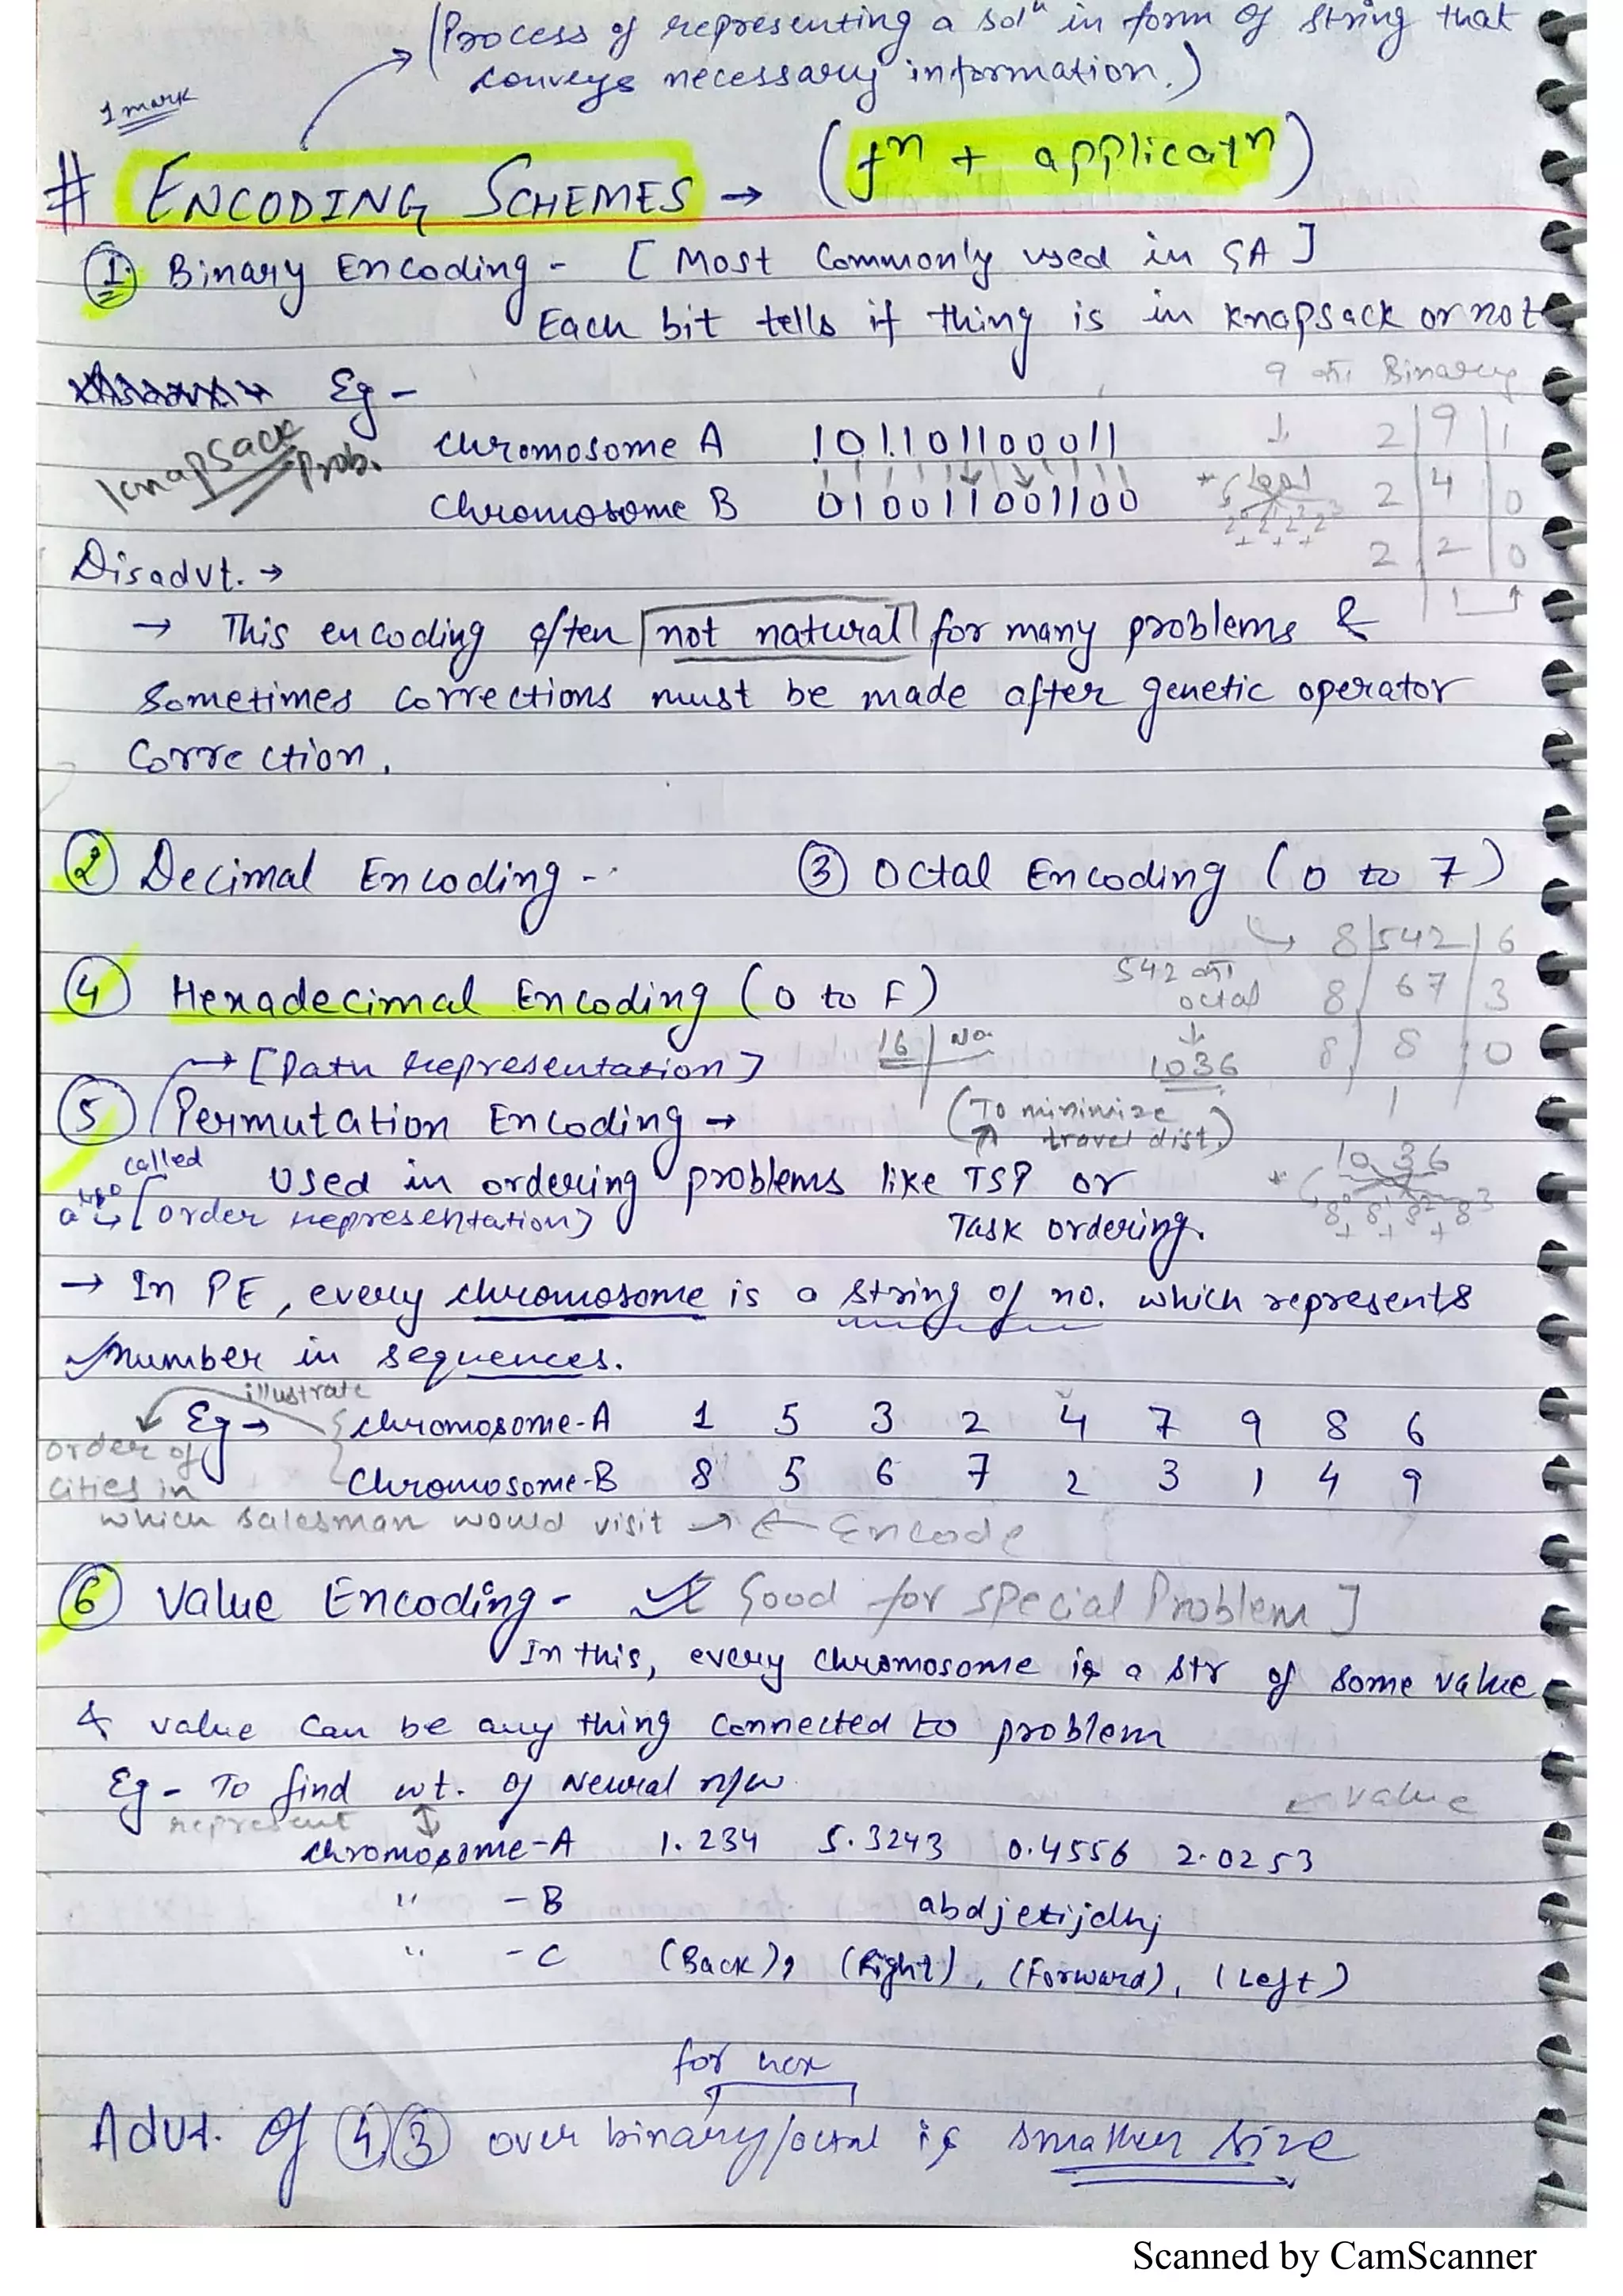 (Process of representing a solⁿ in form of string that
conveys necessary information.)
1 mark
# ENCODING SCHEMES → (fⁿ + applicatⁿ)
① Binary Encoding - [Most Commonly used in GA]
Each bit tells if thing is in Knapsack or not
9 का Binary
Eg -
Knapsack Prob.
Chromosome A 101101100011
Chromosome B 010011001100
↓
* 1001
2⁰ 2¹ 2² 2³
+ + +
2 | 9 | 1
2 | 4 | 0
2 | 2 | 0
1
Disadvt. →
→ This encoding often not natural for many problems &
Sometimes corrections must be made after genetic operator
Correction.
② Decimal Encoding - ③ Octal Encoding (0 to 7)
④ Hexadecimal Encoding (0 to F)
16 | No.
542 का octal
↓
1036
8 | 542 | 6
8 | 67 | 3
8 | 8 | 0
1
→ [Path representation]
⑤ Permutation Encoding →
(To minimize travel dist.)
Used in ordering problems like TSP or
Task ordering.
also called
[order representation]
* 1036
8⁰ 8¹ 8² 8³
+ + +
→ In PE, every chromosome is a string of no. which represents
number in sequences.
illustrate
Eg → Chromosome-A 1 5 3 2 4 7 9 8 6
Chromosome-B 8 5 6 7 2 3 1 4 9
order of
cities in
which salesman would visit → ← Encode
⑥ Value Encoding - [Good for special Problem]
In this, every chromosome is a str of some value
& value can be any thing connected to problem
Eg - To find wt. of Neural n/w
represent
← value
Chromosome-A 1.234 5.3243 0.4556 2.0253
" -B abdjetijdhj
" -C (Back), (Right), (Forward), (Left)
for hex
Advt. of ④,③ over binary/octal is smaller size
Scanned by CamScanner